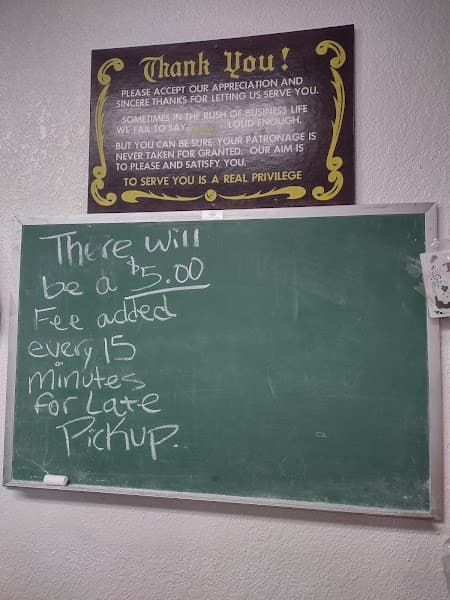 Thank You!
PLEASE ACCEPT OUR APPRECIATION AND
SINCERE THANKS FOR LETTING US SERVE YOU.
SOMETIMES IN THE RUSH OF BUSINESS LIFE
WE FAIL TO SAY LOUD ENOUGH,
BUT YOU CAN BE SURE YOUR PATRONAGE IS
NEVER TAKEN FOR GRANTED. OUR AIM IS
TO PLEASE AND SATISFY YOU.
TO SERVE YOU IS A REAL PRIVILEGE
There will
be a $5.00
Fee added
every 15
minutes
for Late
Pickup.